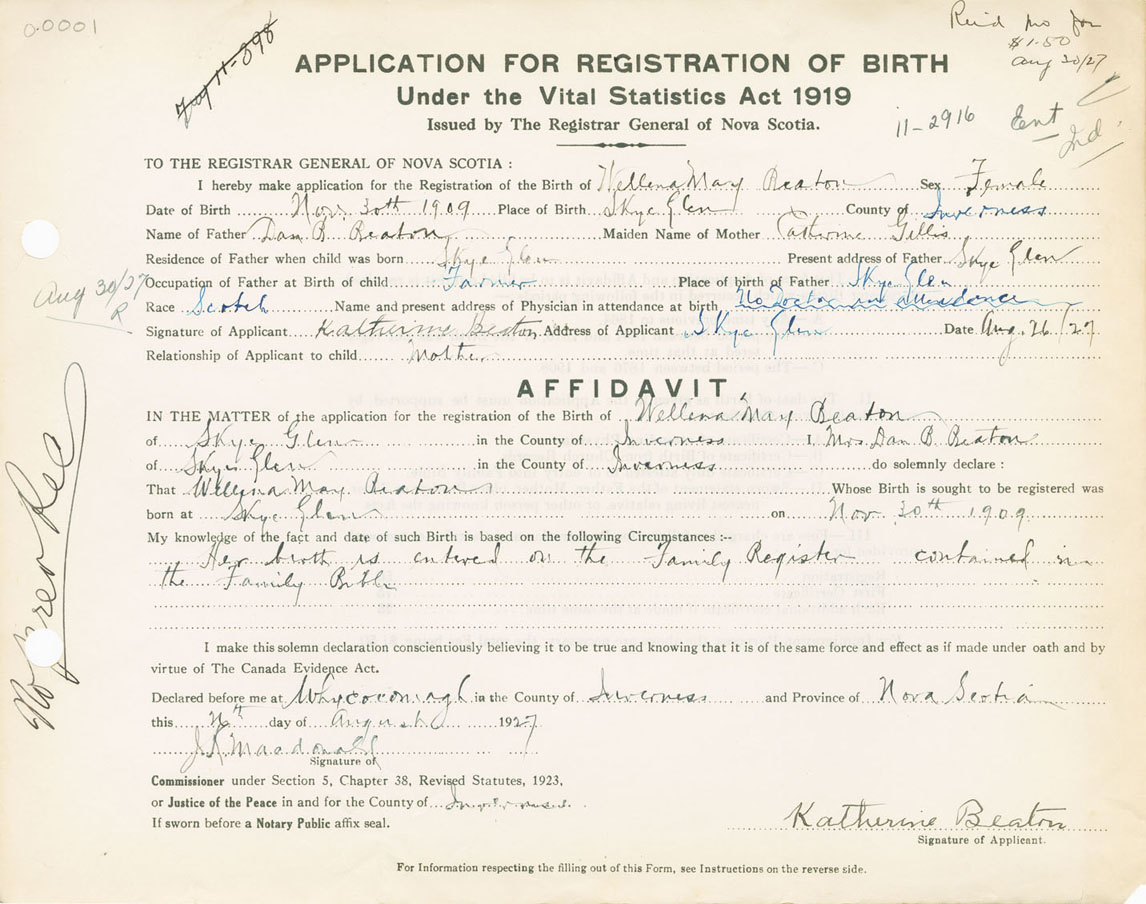 0.0001
11-398
Rec'd mo for
$1.50
Aug 30/27
APPLICATION FOR REGISTRATION OF BIRTH
Under the Vital Statistics Act 1919
Issued by The Registrar General of Nova Scotia.
11-2916
Ent
Ind
TO THE REGISTRAR GENERAL OF NOVA SCOTIA :
I hereby make application for the Registration of the Birth of Wellena May Beaton Sex Female
Date of Birth Nov. 30th 1909 Place of Birth Skye Glen County of Inverness
Name of Father Dan B Beaton Maiden Name of Mother Catherine Gillis
Residence of Father when child was born Skye Glen Present address of Father Skye Glen
Occupation of Father at Birth of child Farmer Place of birth of Father Skye Glen
Aug 30/27
R
Race Scotch Name and present address of Physician in attendance at birth No Doctor in attendance
Signature of Applicant Katherine Beaton Address of Applicant Skye Glen Date Aug. 26/27
Relationship of Applicant to child Mother
AFFIDAVIT
IN THE MATTER of the application for the registration of the Birth of Wellena May Beaton
of Skye Glen in the County of Inverness I, Mrs. Dan B. Beaton
of Skye Glen in the County of Inverness do solemnly declare :
That Wellena May Beaton Whose Birth is sought to be registered was
born at Skye Glen on Nov. 30th 1909
My knowledge of the fact and date of such Birth is based on the following Circumstances :--
Her birth is entered on the Family Register contained in
the Family Bible
I make this solemn declaration conscientiously believing it to be true and knowing that it is of the same force and effect as if made under oath and by
virtue of The Canada Evidence Act.
Declared before me at Whycocomagh in the County of Inverness and Province of Nova Scotia
this 26th day of August 1927
Macdonald
Signature of
Commissioner under Section 5, Chapter 38, Revised Statutes, 1923,
or Justice of the Peace in and for the County of Inverness
If sworn before a Notary Public affix seal.
Katherine Beaton
Signature of Applicant.
For Information respecting the filling out of this Form, see Instructions on the reverse side.
No